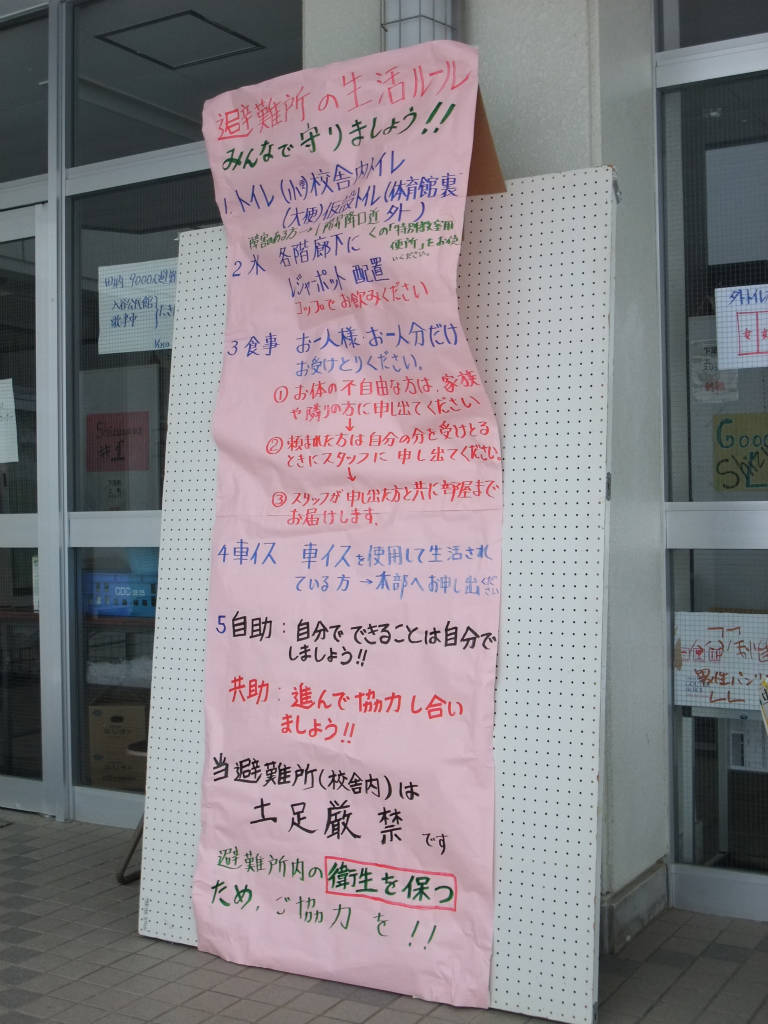 避難所の生活ルール
みんなで守りましょう!!
1.トイレ(小)校舎内トイレ
(大便)仮設トイレ(体育館裏
外)
2 水 各階廊下に
レジャーポット配置
コップでお飲みください
3 食事 お一人様・お一人分だけ
お受けとりください。
① お体の不自由な方は、家族
や隣りの方に申し出てください
↓
② 頼まれた方は自分の分を受けとる
ときにスタッフに申し出てください。
↓
③ スタッフが申し出た方と共に部屋まで
お届けします。
4 車イス 車イスを使用して生活され
ている方→本部へお申し出ください
5 自助:自分でできることは自分で
しましょう!!
共助:進んで協力し合い
ましょう!!
当避難所(校舎内)は
土足厳禁です
避難所内の衛生を保つ
ため、ご協力を!!
入谷公民館
男性パンツ